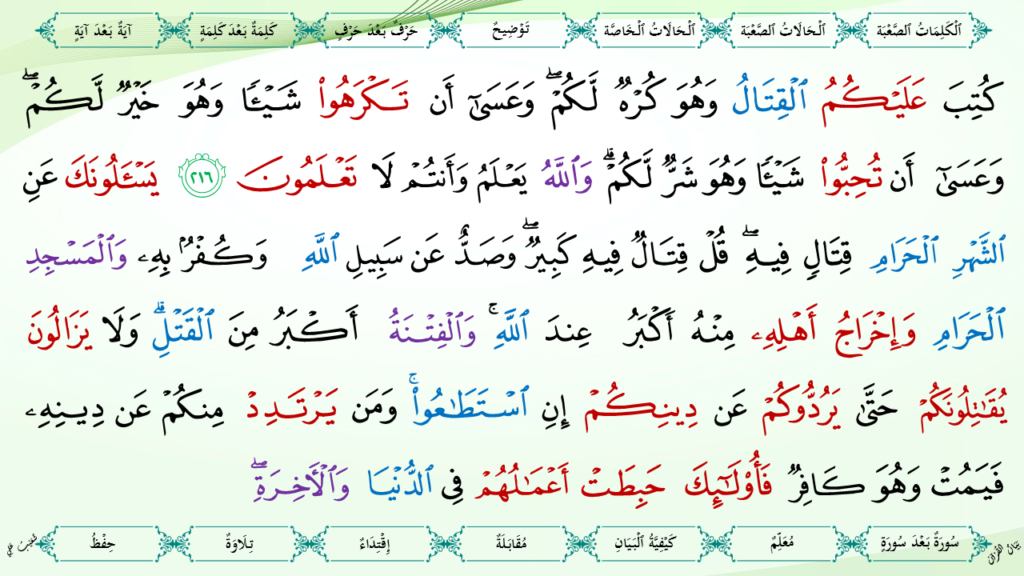 ٱلْكَلِمَاتُ ٱلصَّعْبَة ٱلْحَالَاتُ ٱلصَّعْبَة ٱلْحَالَاتُ ٱلْخَاصَّة تَوْضِيحٌ حَرْفٌ بَعْدَ حَرْفٍ كَلِمَةٌ بَعْدَ كَلِمَةٍ آيَةٌ بَعْدَ آيَةٍ
كُتِبَ عَلَيْكُمُ ٱلْقِتَالُ وَهُوَ كُرْهٌ لَّكُمْ ۖ وَعَسَىٰٓ أَن تَكْرَهُوا۟ شَيْـًٔا وَهُوَ خَيْرٌ لَّكُمْ ۖ
وَعَسَىٰٓ أَن تُحِبُّوا۟ شَيْـًٔا وَهُوَ شَرٌّ لَّكُمْ ۗ وَٱللَّهُ يَعْلَمُ وَأَنتُمْ لَا تَعْلَمُونَ ٢١٦ يَسْـَٔلُونَكَ عَنِ
ٱلشَّهْرِ ٱلْحَرَامِ قِتَالٍ فِيهِ ۖ قُلْ قِتَالٌ فِيهِ كَبِيرٌ ۖ وَصَدٌّ عَن سَبِيلِ ٱللَّهِ وَكُفْرٌۢ بِهِۦ وَٱلْمَسْجِدِ
ٱلْحَرَامِ وَإِخْرَاجُ أَهْلِهِۦ مِنْهُ أَكْبَرُ عِندَ ٱللَّهِ ۚ وَٱلْفِتْنَةُ أَكْبَرُ مِنَ ٱلْقَتْلِ ۗ وَلَا يَزَالُونَ
يُقَـٰتِلُونَكُمْ حَتَّىٰ يَرُدُّوكُمْ عَن دِينِكُمْ إِنِ ٱسْتَطَـٰعُوا۟ ۚ وَمَن يَرْتَدِدْ مِنكُمْ عَن دِينِهِۦ
فَيَمُتْ وَهُوَ كَافِرٌ فَأُو۟لَـٰٓئِكَ حَبِطَتْ أَعْمَـٰلُهُمْ فِى ٱلدُّنْيَا وَٱلْـَٔاخِرَةِ ۖ
بَيَانُ القُرْآن سُورَةٌ بَعْدَ سُورَةٍ مُعَلِّمٌ كَيْفِيَّةُ ٱلْبَيَانِ مُقَابَلَةٌ إِقْتِدَاءٌ تِلَاوَةٌ حِفْظُ